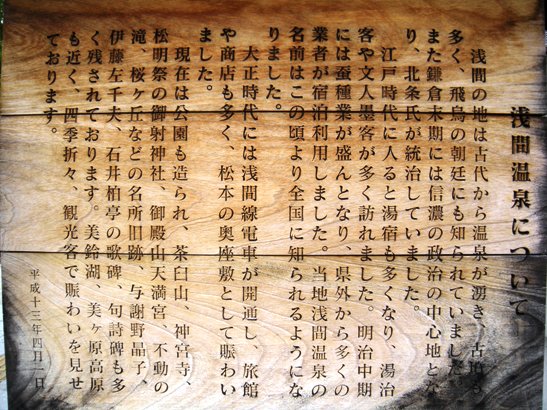 浅間温泉について
浅間の地は古代から温泉が湧き、古墳も
多く、飛鳥の朝廷にも知られていました。
また鎌倉末期には信濃の政治の中心地とな
り、北条氏が統治していました。
江戸時代に入ると湯宿も多くなり、湯治
客や文人墨客が多く訪れました。明治中期
には蚕種業が盛んとなり、県外から多くの
業者が宿泊利用しました。当地浅間温泉の
名前はこの頃より全国に知られるようにな
りました。
大正時代には浅間線電車が開通し、旅館
や商店も多く、松本の奥座敷として賑わい
ました。
現在は公園も造られ、茶臼山、神宮寺、
松明祭の御射神社、御殿山天満宮、不動の
滝、桜ヶ丘などの名所旧跡、与謝野晶子、
伊藤左千夫、石井柏亭の歌碑、句詩碑も多
く残されております。美鈴湖、美ヶ原高原
も近く、四季折々、観光客で賑わいを見せ
ております。
平成十三年四月二日